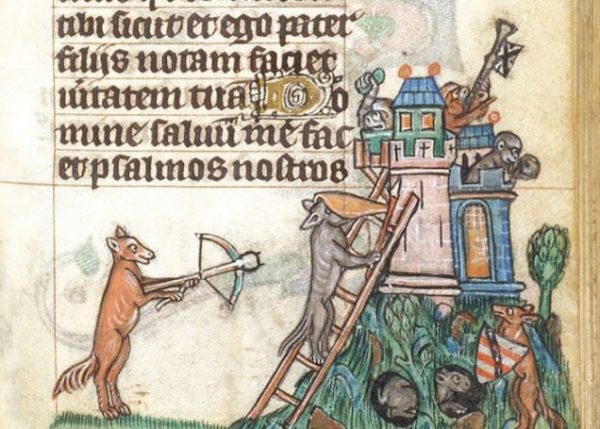 tibi sicut et ego pater
filijs notam faciet
uitatem tua Do
mine saluū me fac
et psalmos nostros